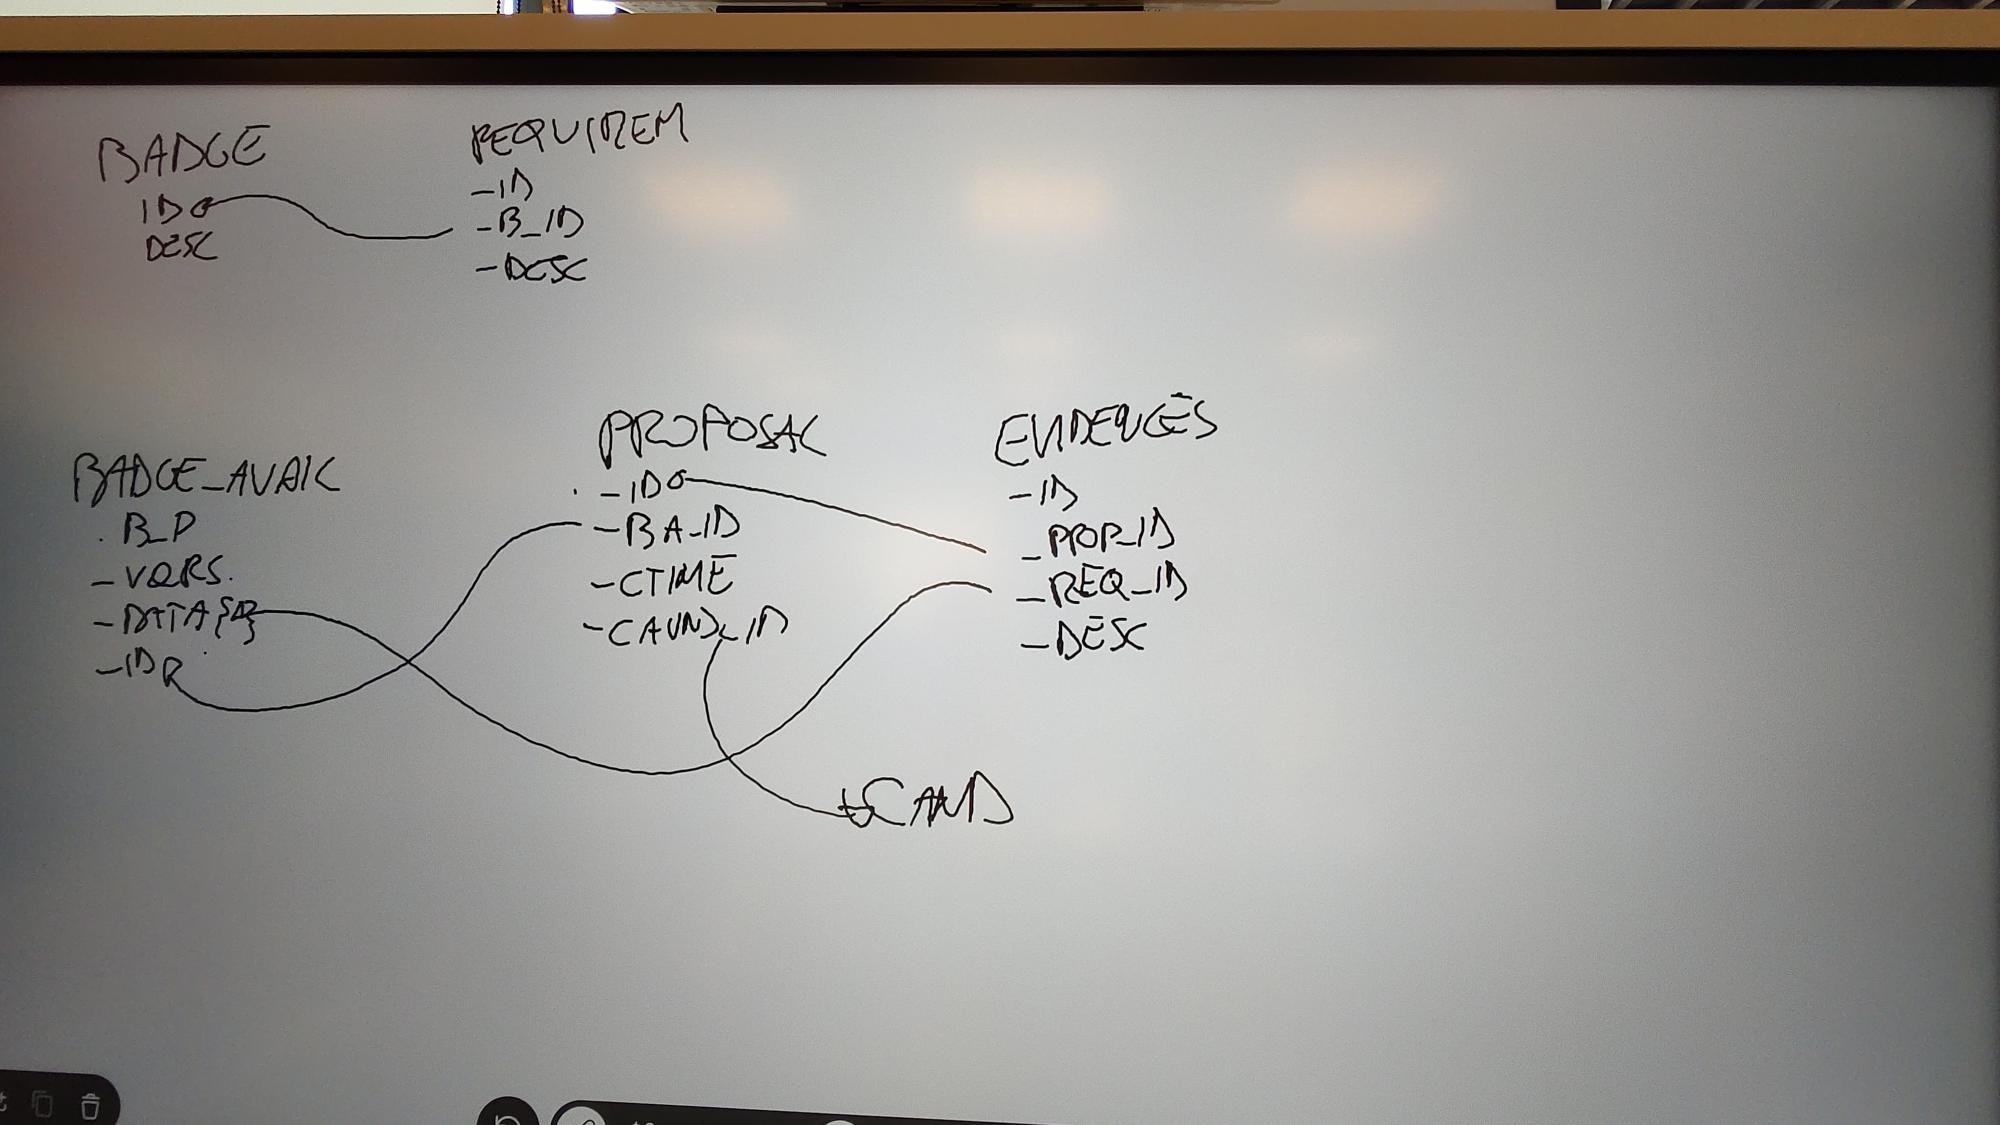 BADGE
ID
DESC
REQUIREM
-ID
-B_ID
-DESC
BADGE_AVAIL
. B_D
-VERS.
-DATA{}
-ID
PROPOSAL
-ID
-BA_ID
-CTIME
-CAND_ID
EVIDENCES
-ID
-PROP_ID
-REQ_ID
-DESC
CAND